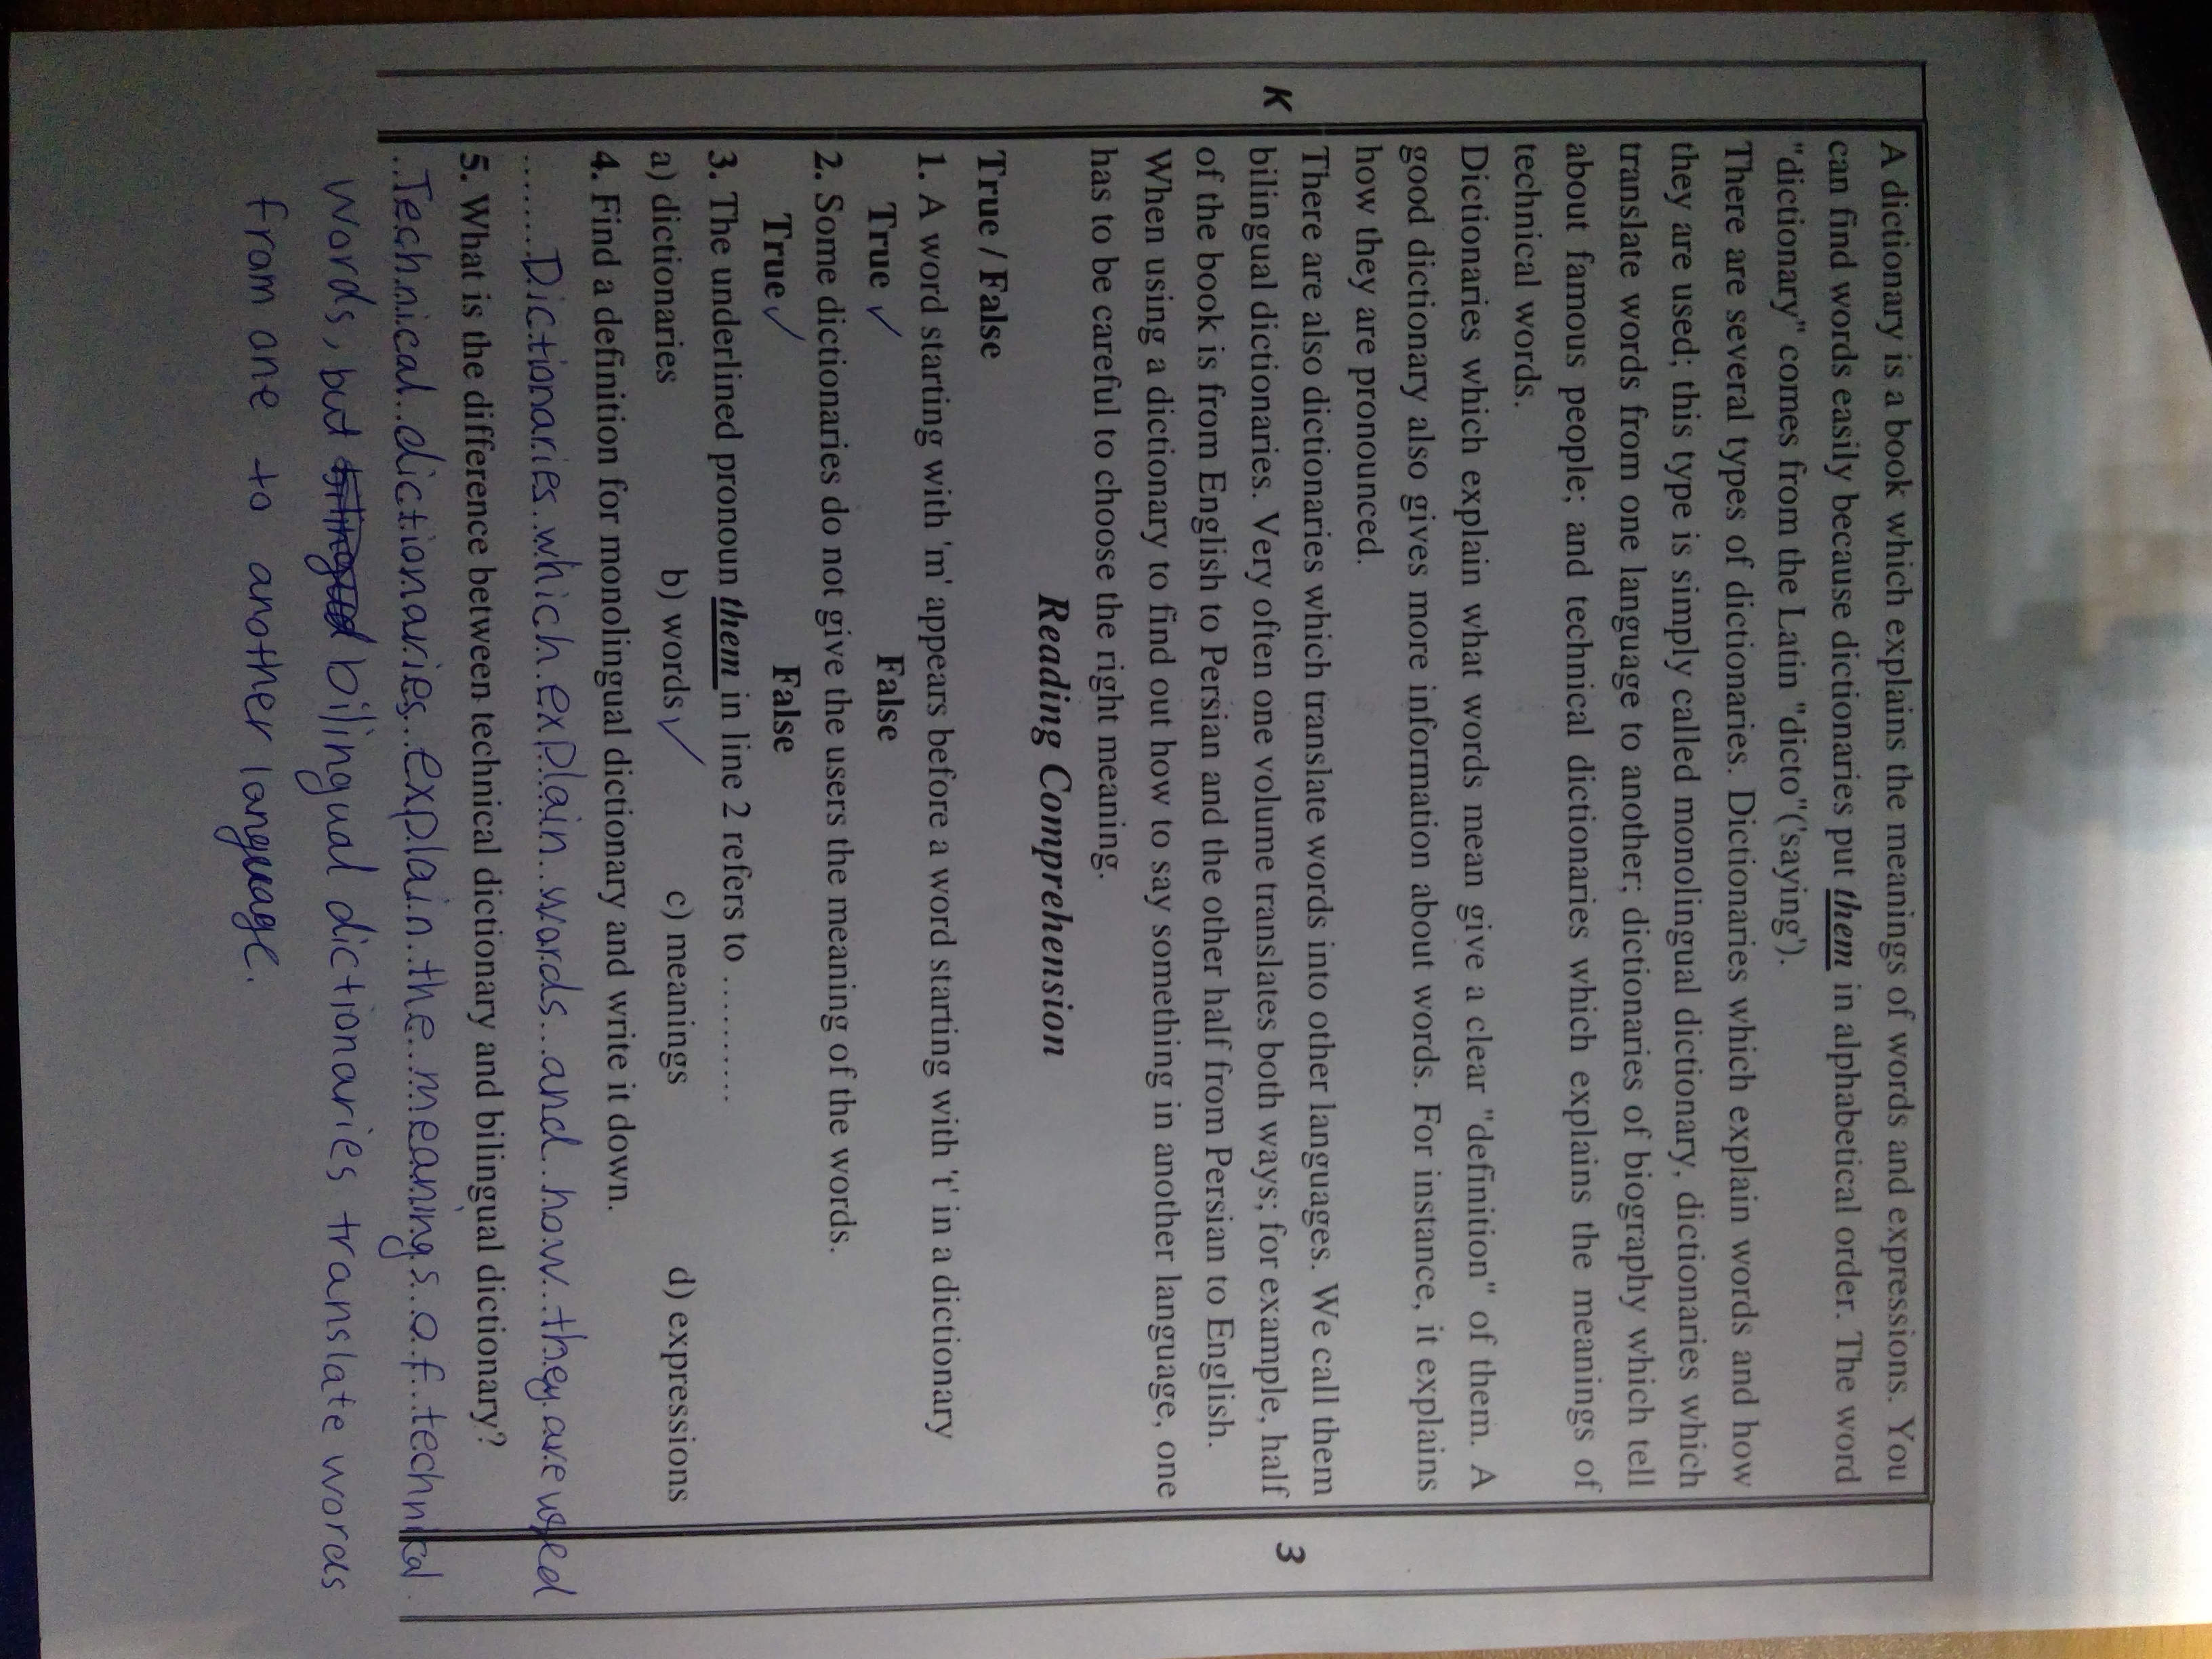 A dictionary is a book which explains the meanings of words and expressions. You
can find words easily because dictionaries put them in alphabetical order. The word
"dictionary" comes from the Latin "dicto"('saying').
There are several types of dictionaries. Dictionaries which explain words and how
they are used; this type is simply called monolingual dictionary, dictionaries which
translate words from one language to another; dictionaries of biography which tell
about famous people; and technical dictionaries which explains the meanings of
technical words.
Dictionaries which explain what words mean give a clear "definition" of them. A
good dictionary also gives more information about words. For instance, it explains
how they are pronounced.
K
3
There are also dictionaries which translate words into other languages. We call them
bilingual dictionaries. Very often one volume translates both ways; for example, half
of the book is from English to Persian and the other half from Persian to English.
When using a dictionary to find out how to say something in another language, one
has to be careful to choose the right meaning.
Reading Comprehension
True / False
1. A word starting with 'm' appears before a word starting with 't' in a dictionary
True ✓ False
2. Some dictionaries do not give the users the meaning of the words.
True ✓ False
3. The underlined pronoun them in line 2 refers to ..........
a) dictionaries b) words ✓ c) meanings d) expressions
4. Find a definition for monolingual dictionary and write it down.
Dictionaries which explain words and how they are used
5. What is the difference between technical dictionary and bilingual dictionary?
Technical dictionaries explain the meanings of technical
words, but bilingual dictionaries translate words
from one to another language.